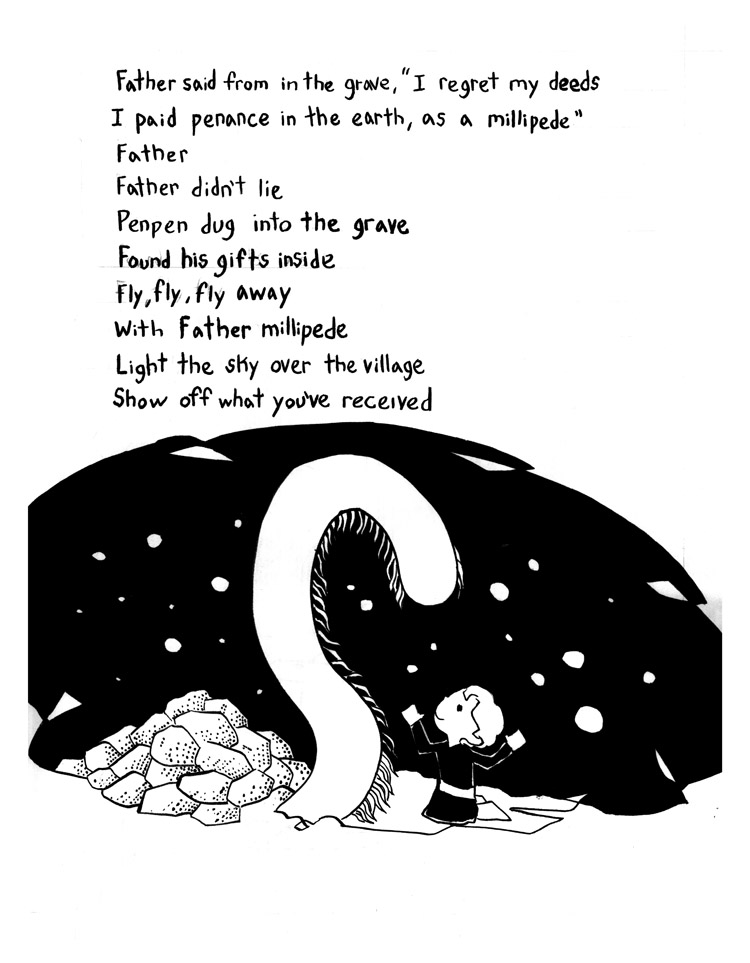 Father said from in the grave, "I regret my deeds
I paid penance in the earth, as a millipede"
Father
Father didn't lie
Penpen dug into the grave
Found his gifts inside
Fly, fly, fly away
With Father millipede
Light the sky over the village
Show off what you've received